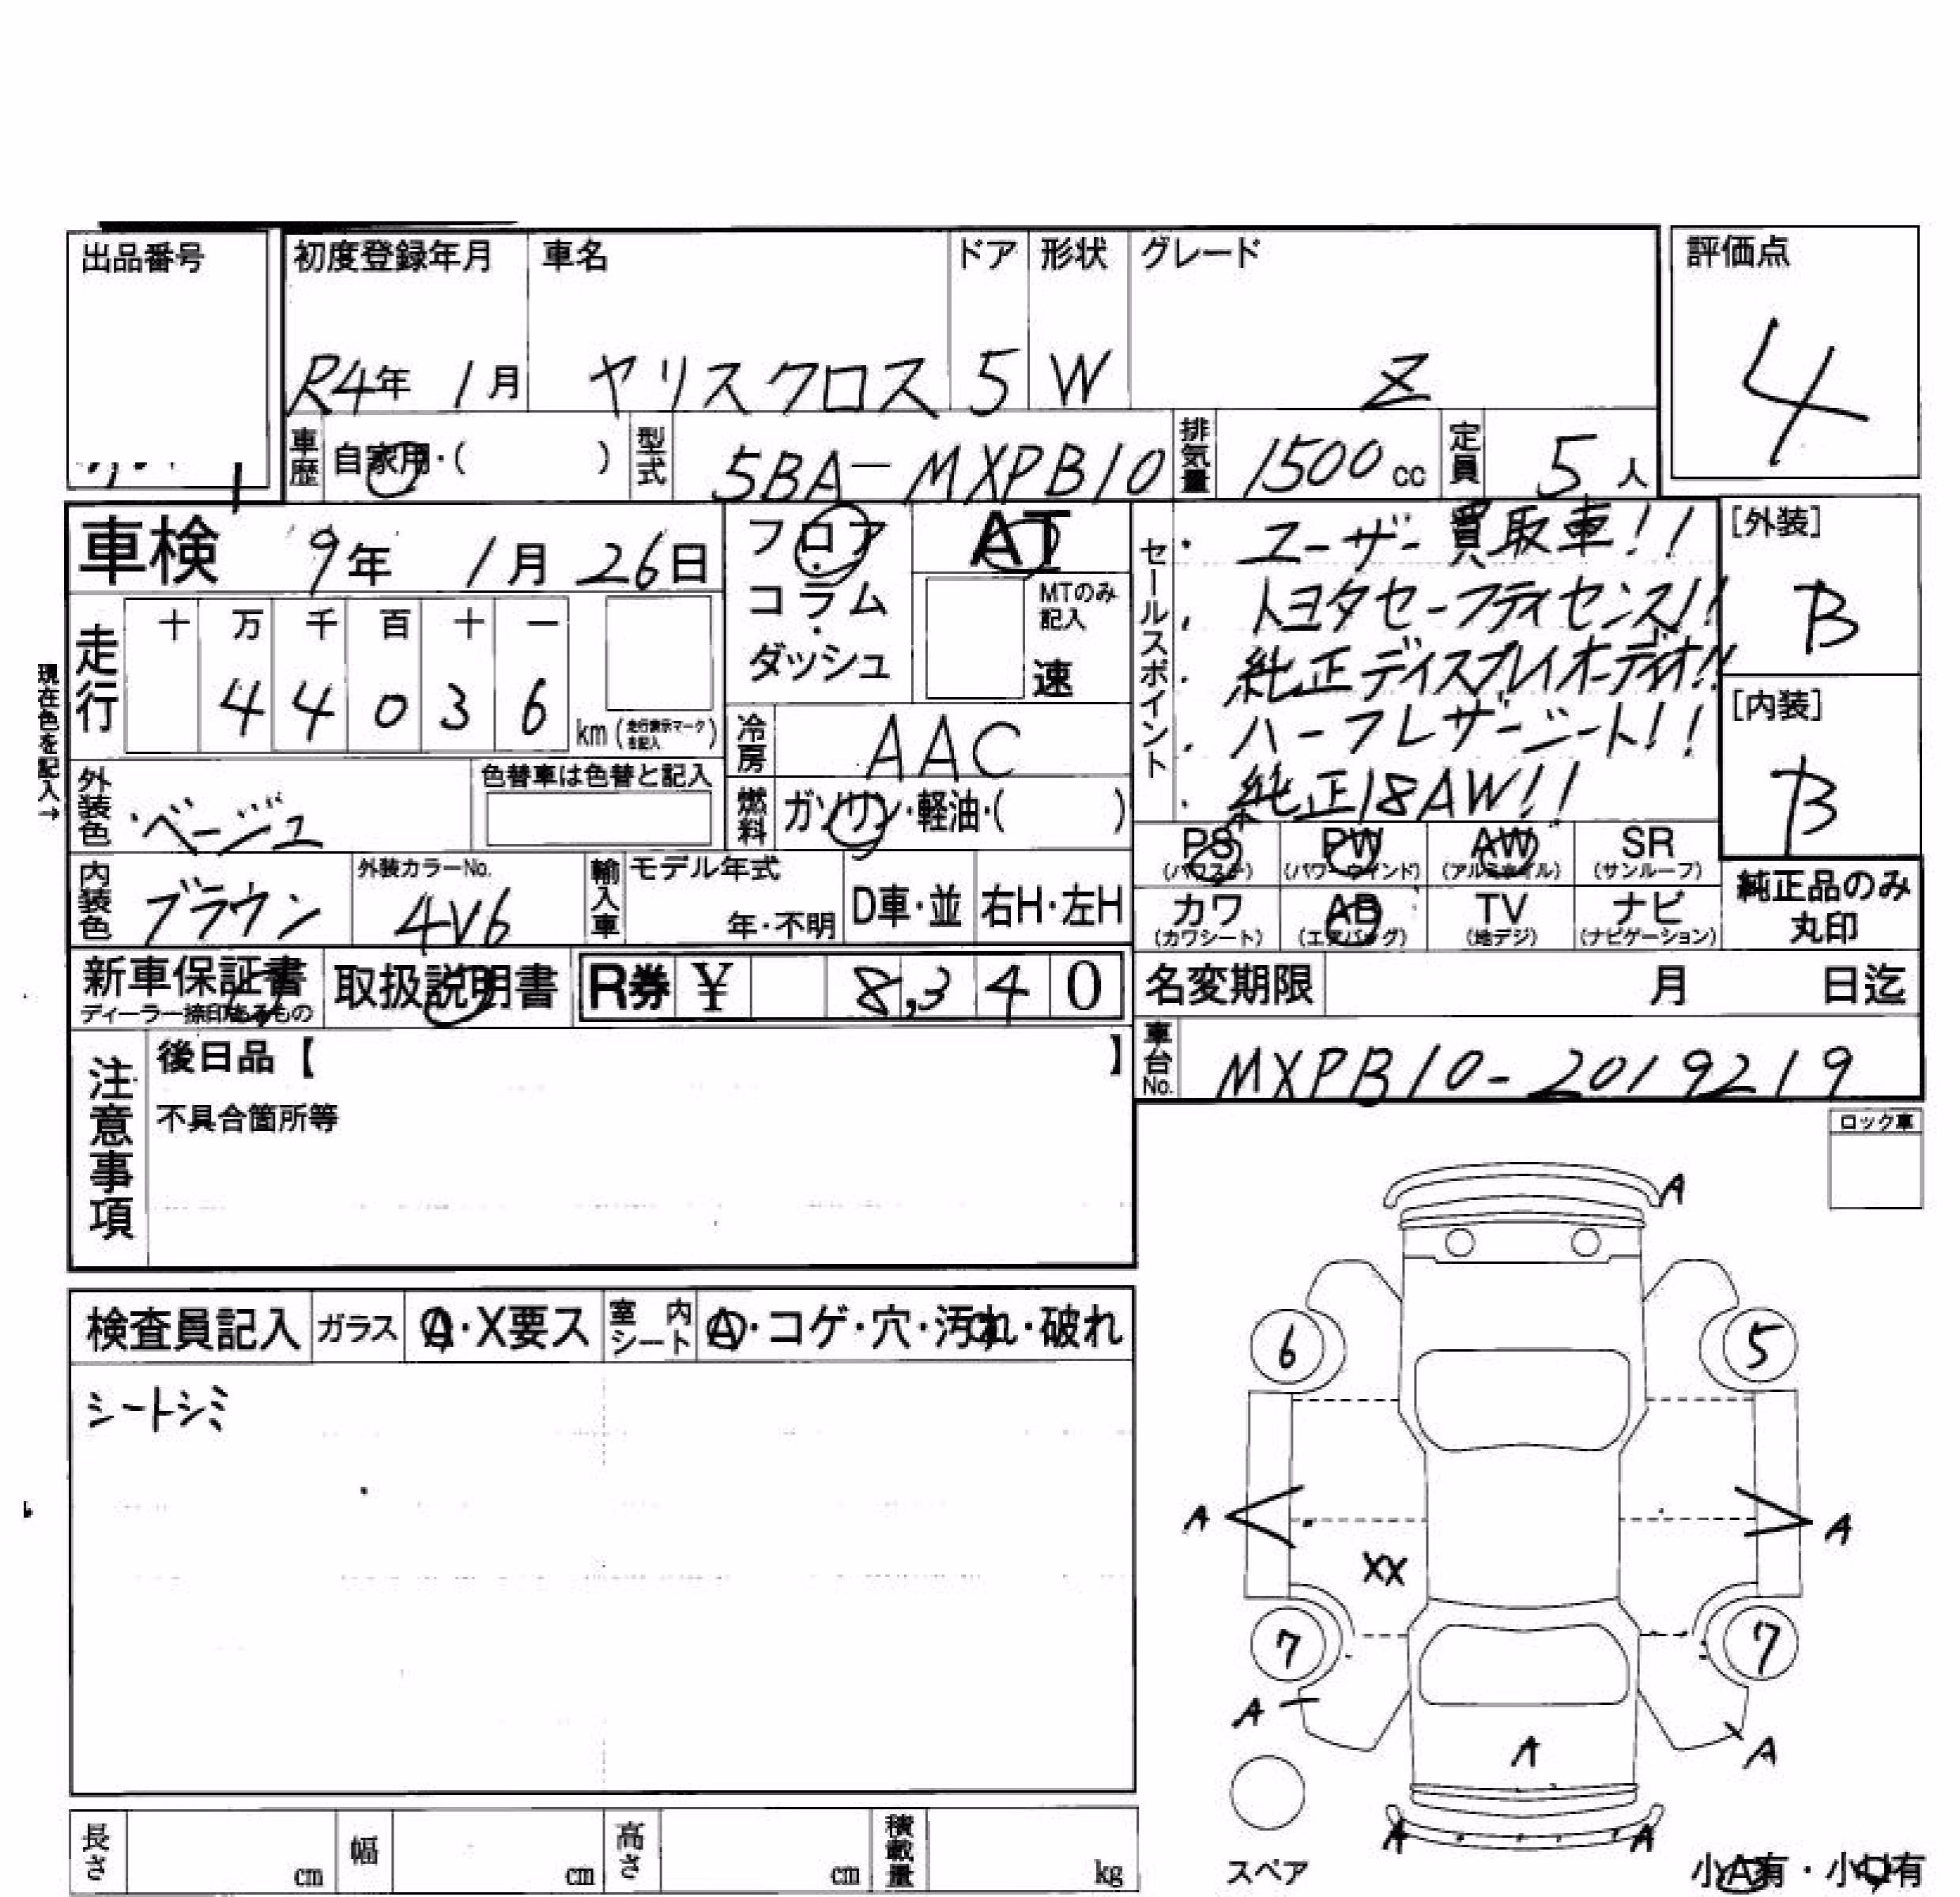 出品番号
初度登録年月 車名 ドア 形状 グレード
R4年 1月 ヤリスクロス 5 W Z
評価点
4
車歴 自家用・( ) 型式 5BA-MXPB10 排気量 1500cc 定員 5人
車検 9年 1月 26日
フロア・コラム・ダッシュ
AT
MTのみ記入
速
現在色を記入→
走行 十 万 千 百 十 一
4 4 0 3 6 km (走行表示マークを記入)
冷房 AAC
燃料 ガソリン・軽油・( )
外装色 ベージュ 色替車は色替と記入
内装色 ブラウン 外装カラーNo. 4V6 輸入車 モデル年式 年・不明 D車・並 右H・左H
セールスポイント
・ユーザー買取車!!
・トヨタセーフティセンス!!
・純正ディスプレイオーディオ!!
・ハーフレザーシート!!
・純正18AW!!
[外装]
B
[内装]
B
PS (パワステ) PW (パワーウインド) AW (アルミホイル) SR (サンルーフ)
カワ (カワシート) AB (エアバッグ) TV (地デジ) ナビ (ナビゲーション)
純正品のみ丸印
新車保証書 ディーラー捺印あるもの 取扱説明書 R券 ¥ 8,340
名変期限 月 日迄
車台No. MXPB10-2019219
注意事項
後日品【 】
不具合箇所等
ロック車
検査員記入 ガラス A・X要ス 室内シート A・コゲ・穴・汚れ・破れ
シートシミ
A
6 5
A A
XX
7 7
A A
A
A A
スペア
小A有・小U有
長さ cm 幅 cm 高さ cm 積載量 kg